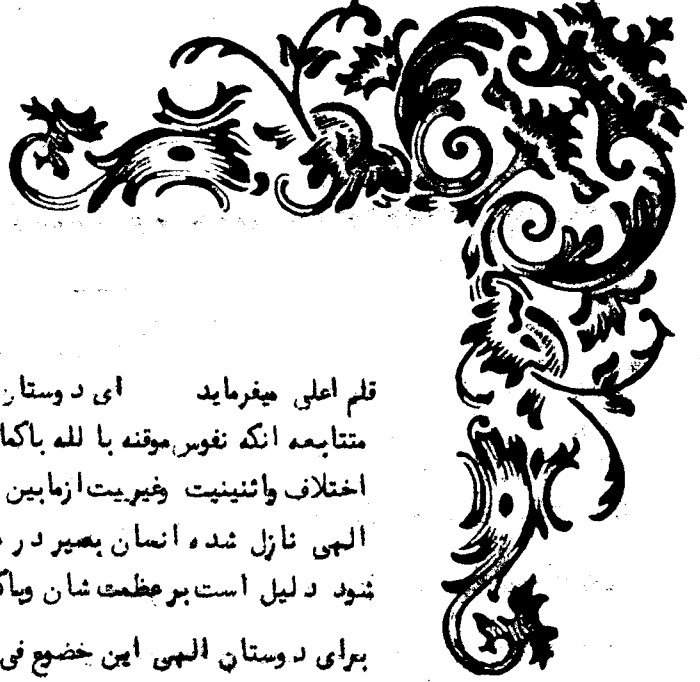 قلم اعلی میفرماید ای دوستان
متتابعه انکه نفوس موقنه با لله باکما
اختلاف واثنینیت وغیریت ازمابین
الهی نازل شده انسان بصیر در
شود دلیل است برعظمت شان وباک
برای دوستان الهی این خضوع فی